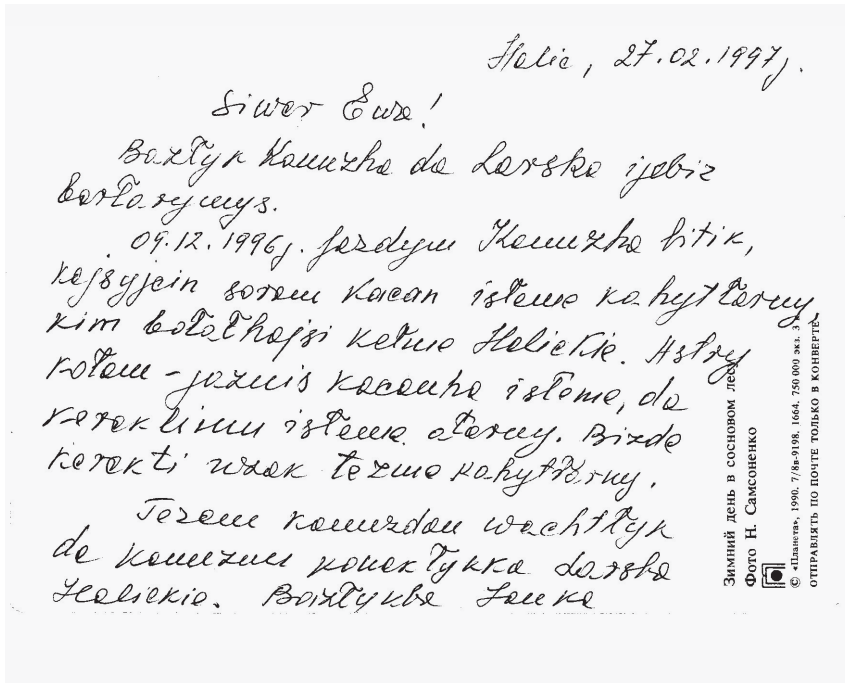 Halic, 27.02.1997j.
Siwer Ewa!
Bazłyk Kamuzha da Larska ijebiz
bartarymys.
09.12.1996j. jazdym Kamuzha bitik,
kajsyjcin soram kacan isteme kahytłarny
kim bołałhajsi kełme Halickie. Astry
kołam - jaznis kacanha isteme, da
kereklimu isteme ałarny. Bizde
kerekti uzak tezme kahytłarny.
Tezem kamuzdan wachtłyk
da kamuzun konakłykka Larska
Halickie. Bazłykba Janka
Зимний день в сосновом лесу
Фото Н. Самсоненко
© «Планета», 1990. 7/8в-9198. 1664. 750 000 экз. 3
ОТПРАВЛЯТЬ ПО ПОЧТЕ ТОЛЬКО В КОНВЕРТЕ